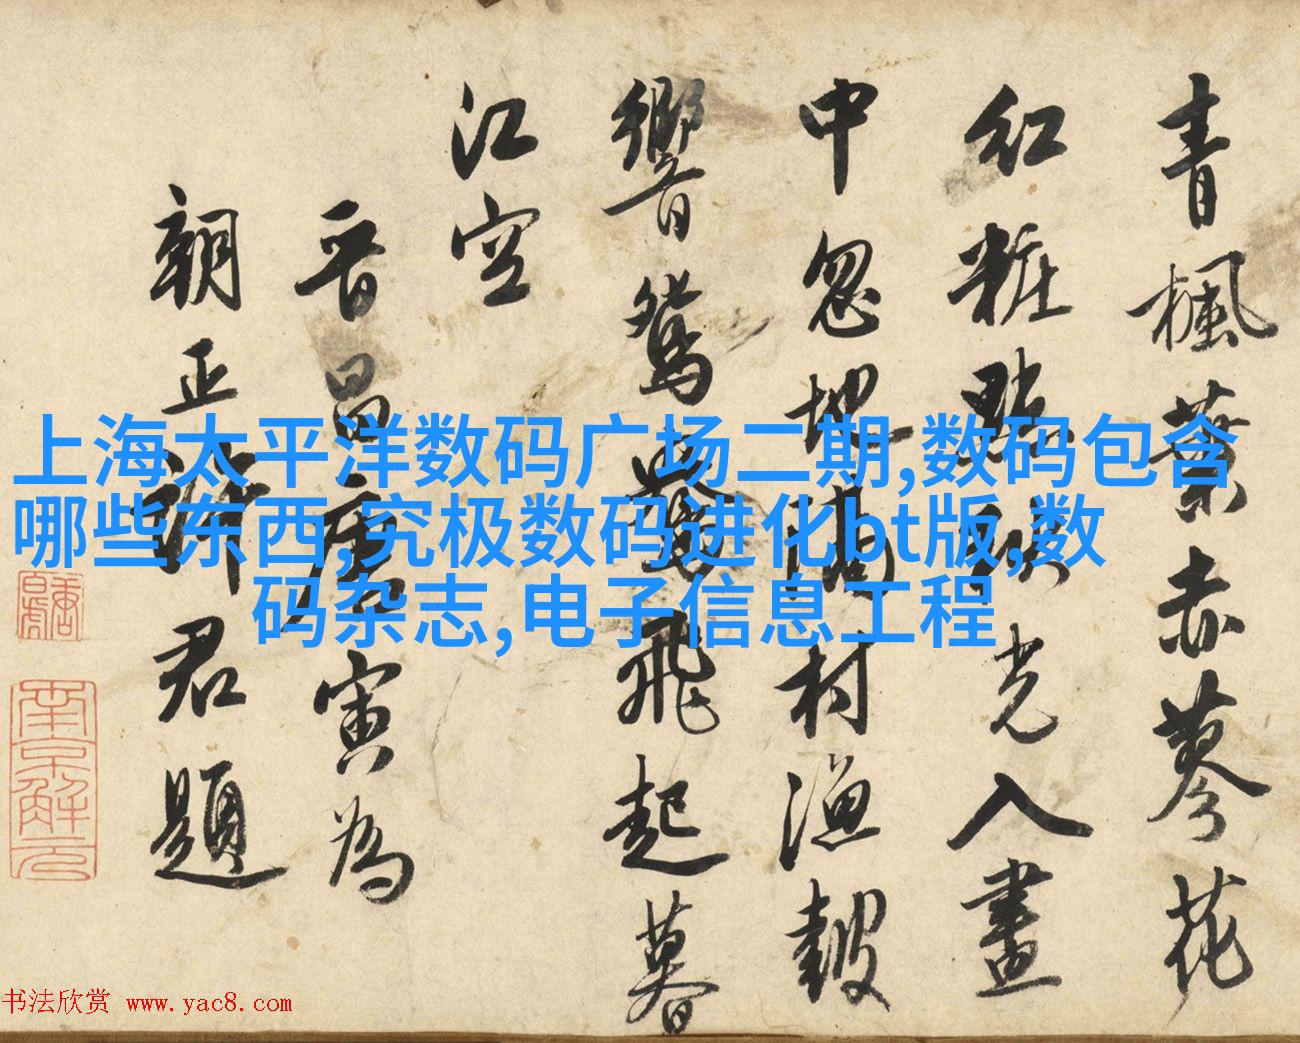 青楓葉赤蓼花
紅粧點秋光入畫
中忽地滿村漁鼓
響鴛鴦飛起暮
江空
晉昌唐寅為
朝正詳君題
南京解元
上海太平洋数码广场二期,数码包含
哪些东西,究极数码进化bt版,数
码杂志,电子信息工程
书法欣赏 www.yac8.com